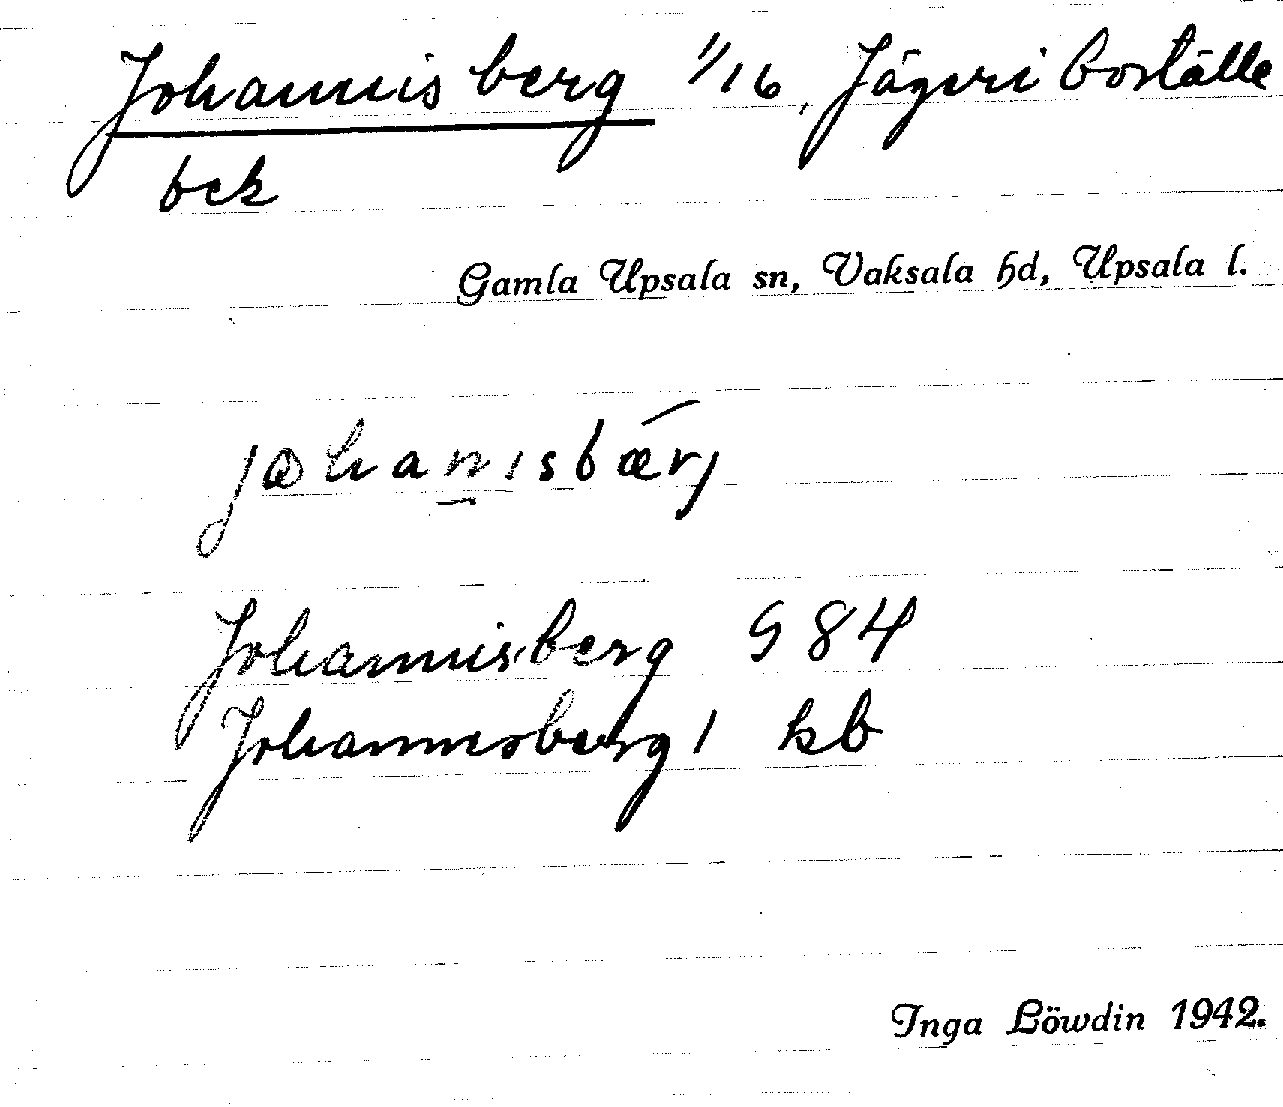 Johannisberg 1/16, Jägeri boställe
bek
Gamla Upsala sn, Vaksala hd, Upsala l.
johanisbærj
Johannisberg G 84
Johannesberg 1 kb
Inga Löwdin 1942.